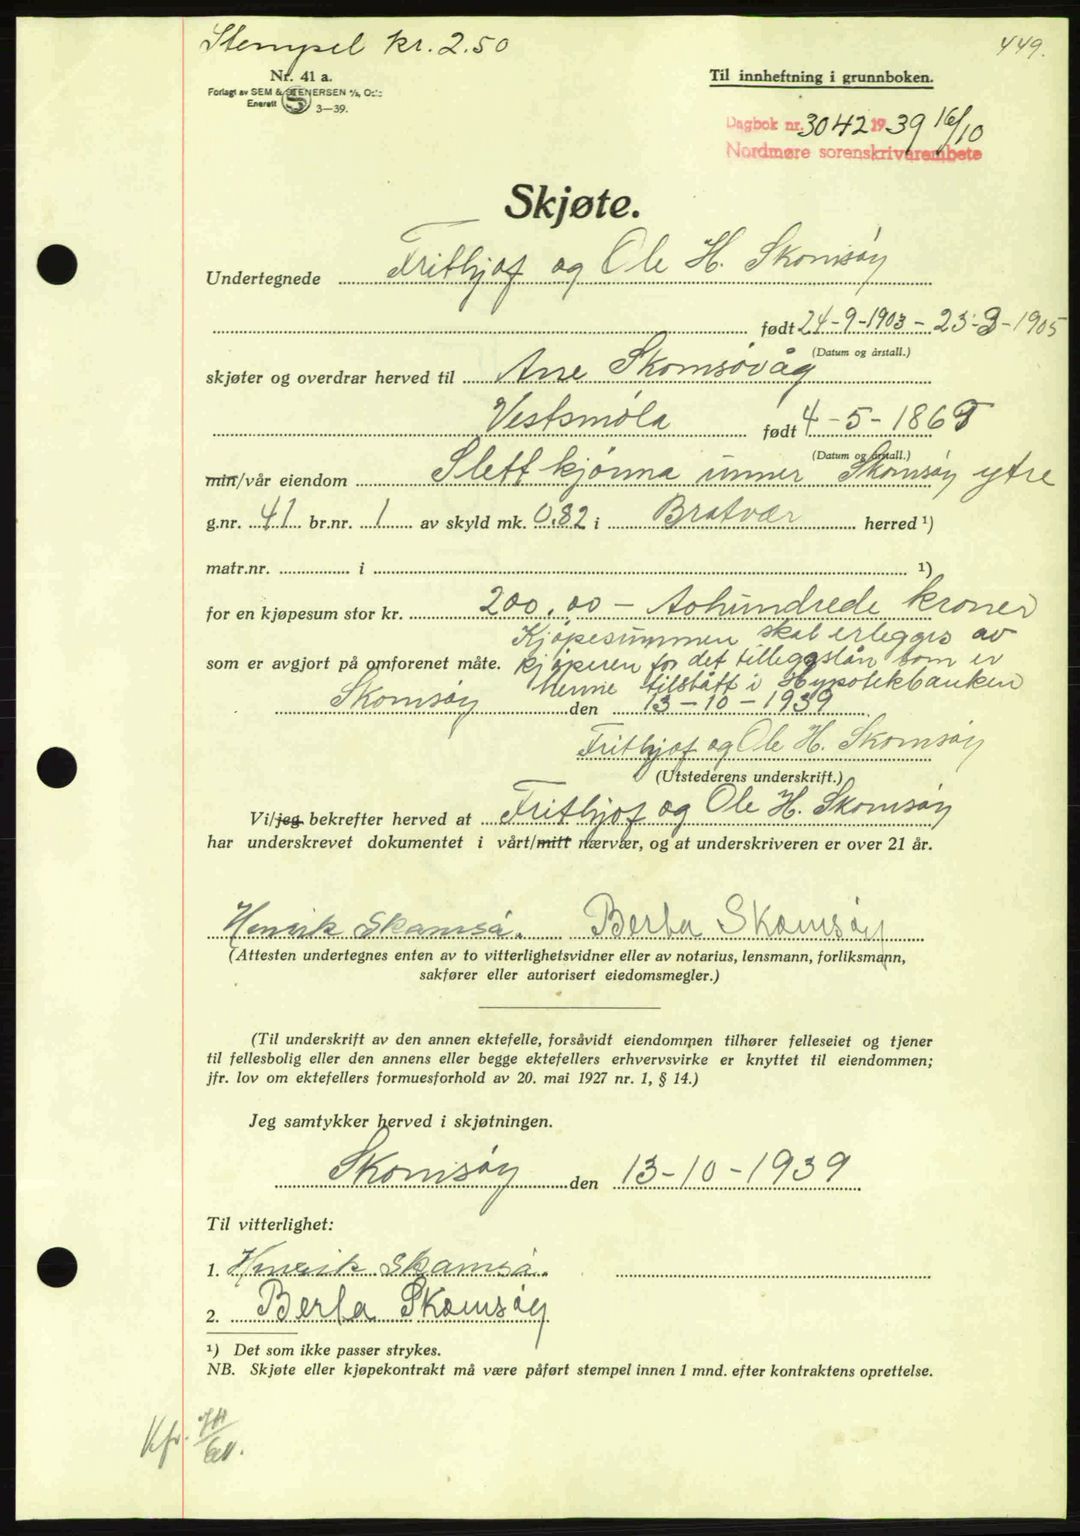 Stempel kr. 2.50
449.
Nr. 41 a.
Forlagt av SEM & STENERSEN A/S, Oslo
Enerett 3—39.
Til innheftning i grunnboken.
Dagbok nr. 3042 1939 16/10
Nordmøre sorenskriverembete
Skjøte.
Undertegnede Frithjof og Ole H. Skomsøy
født 24-9-1903 - 23-9-1905
(Datum og årstall.)
skjøter og overdrar herved til Ane Skomsøvåg
Vestsmøla født 4-5-1869
(Datum og årstall.)
min/vår eiendom Slettkjønna unner Skomsøy ytre
g.nr. 41 br.nr. 1 av skyld mk. 0.82 i Bratvær herred ¹)
matr.nr. i ¹)
for en kjøpesum stor kr. 200,00 - Tohundrede kroner
Kjøpesummen skal erlegges av
som er avgjort på omforenet måte. kjøperen for det tilleggslån som er
henne tilstått i Hypotekbanken
Skomsøy den 13-10-1939
Frithjof og Ole H. Skomsøy
(Utstederens underskrift.)
Vi/jeg bekrefter herved at Frithjof og Ole H. Skomsøy
har underskrevet dokumentet i vårt/mitt nærvær, og at underskriveren er over 21 år.
Henrik Skamsø. Berta Skomsøy
(Attesten undertegnes enten av to vitterlighetsvidner eller av notarius, lensmann, forliksmann,
sakfører eller autorisert eiedomsmegler.)
(Til underskrift av den annen ektefelle, forsåvidt eiendommen tilhører felleseiet og tjener
til fellesbolig eller den annens eller begge ektefellers erhvervsvirke er knyttet til eiendommen;
jfr. lov om ektefellers formuesforhold av 20. mai 1927 nr. 1, § 14.)
Jeg samtykker herved i skjøtningen.
Skomsøy den 13-10-1939
Til vitterlighet:
1. Henrik Skamsø.
2. Berta Skomsøy
¹) Det som ikke passer strykes.
NB. Skjøte eller kjøpekontrakt må være påført stempel innen 1 mnd. efter kontraktens oprettelse.
Kfr.